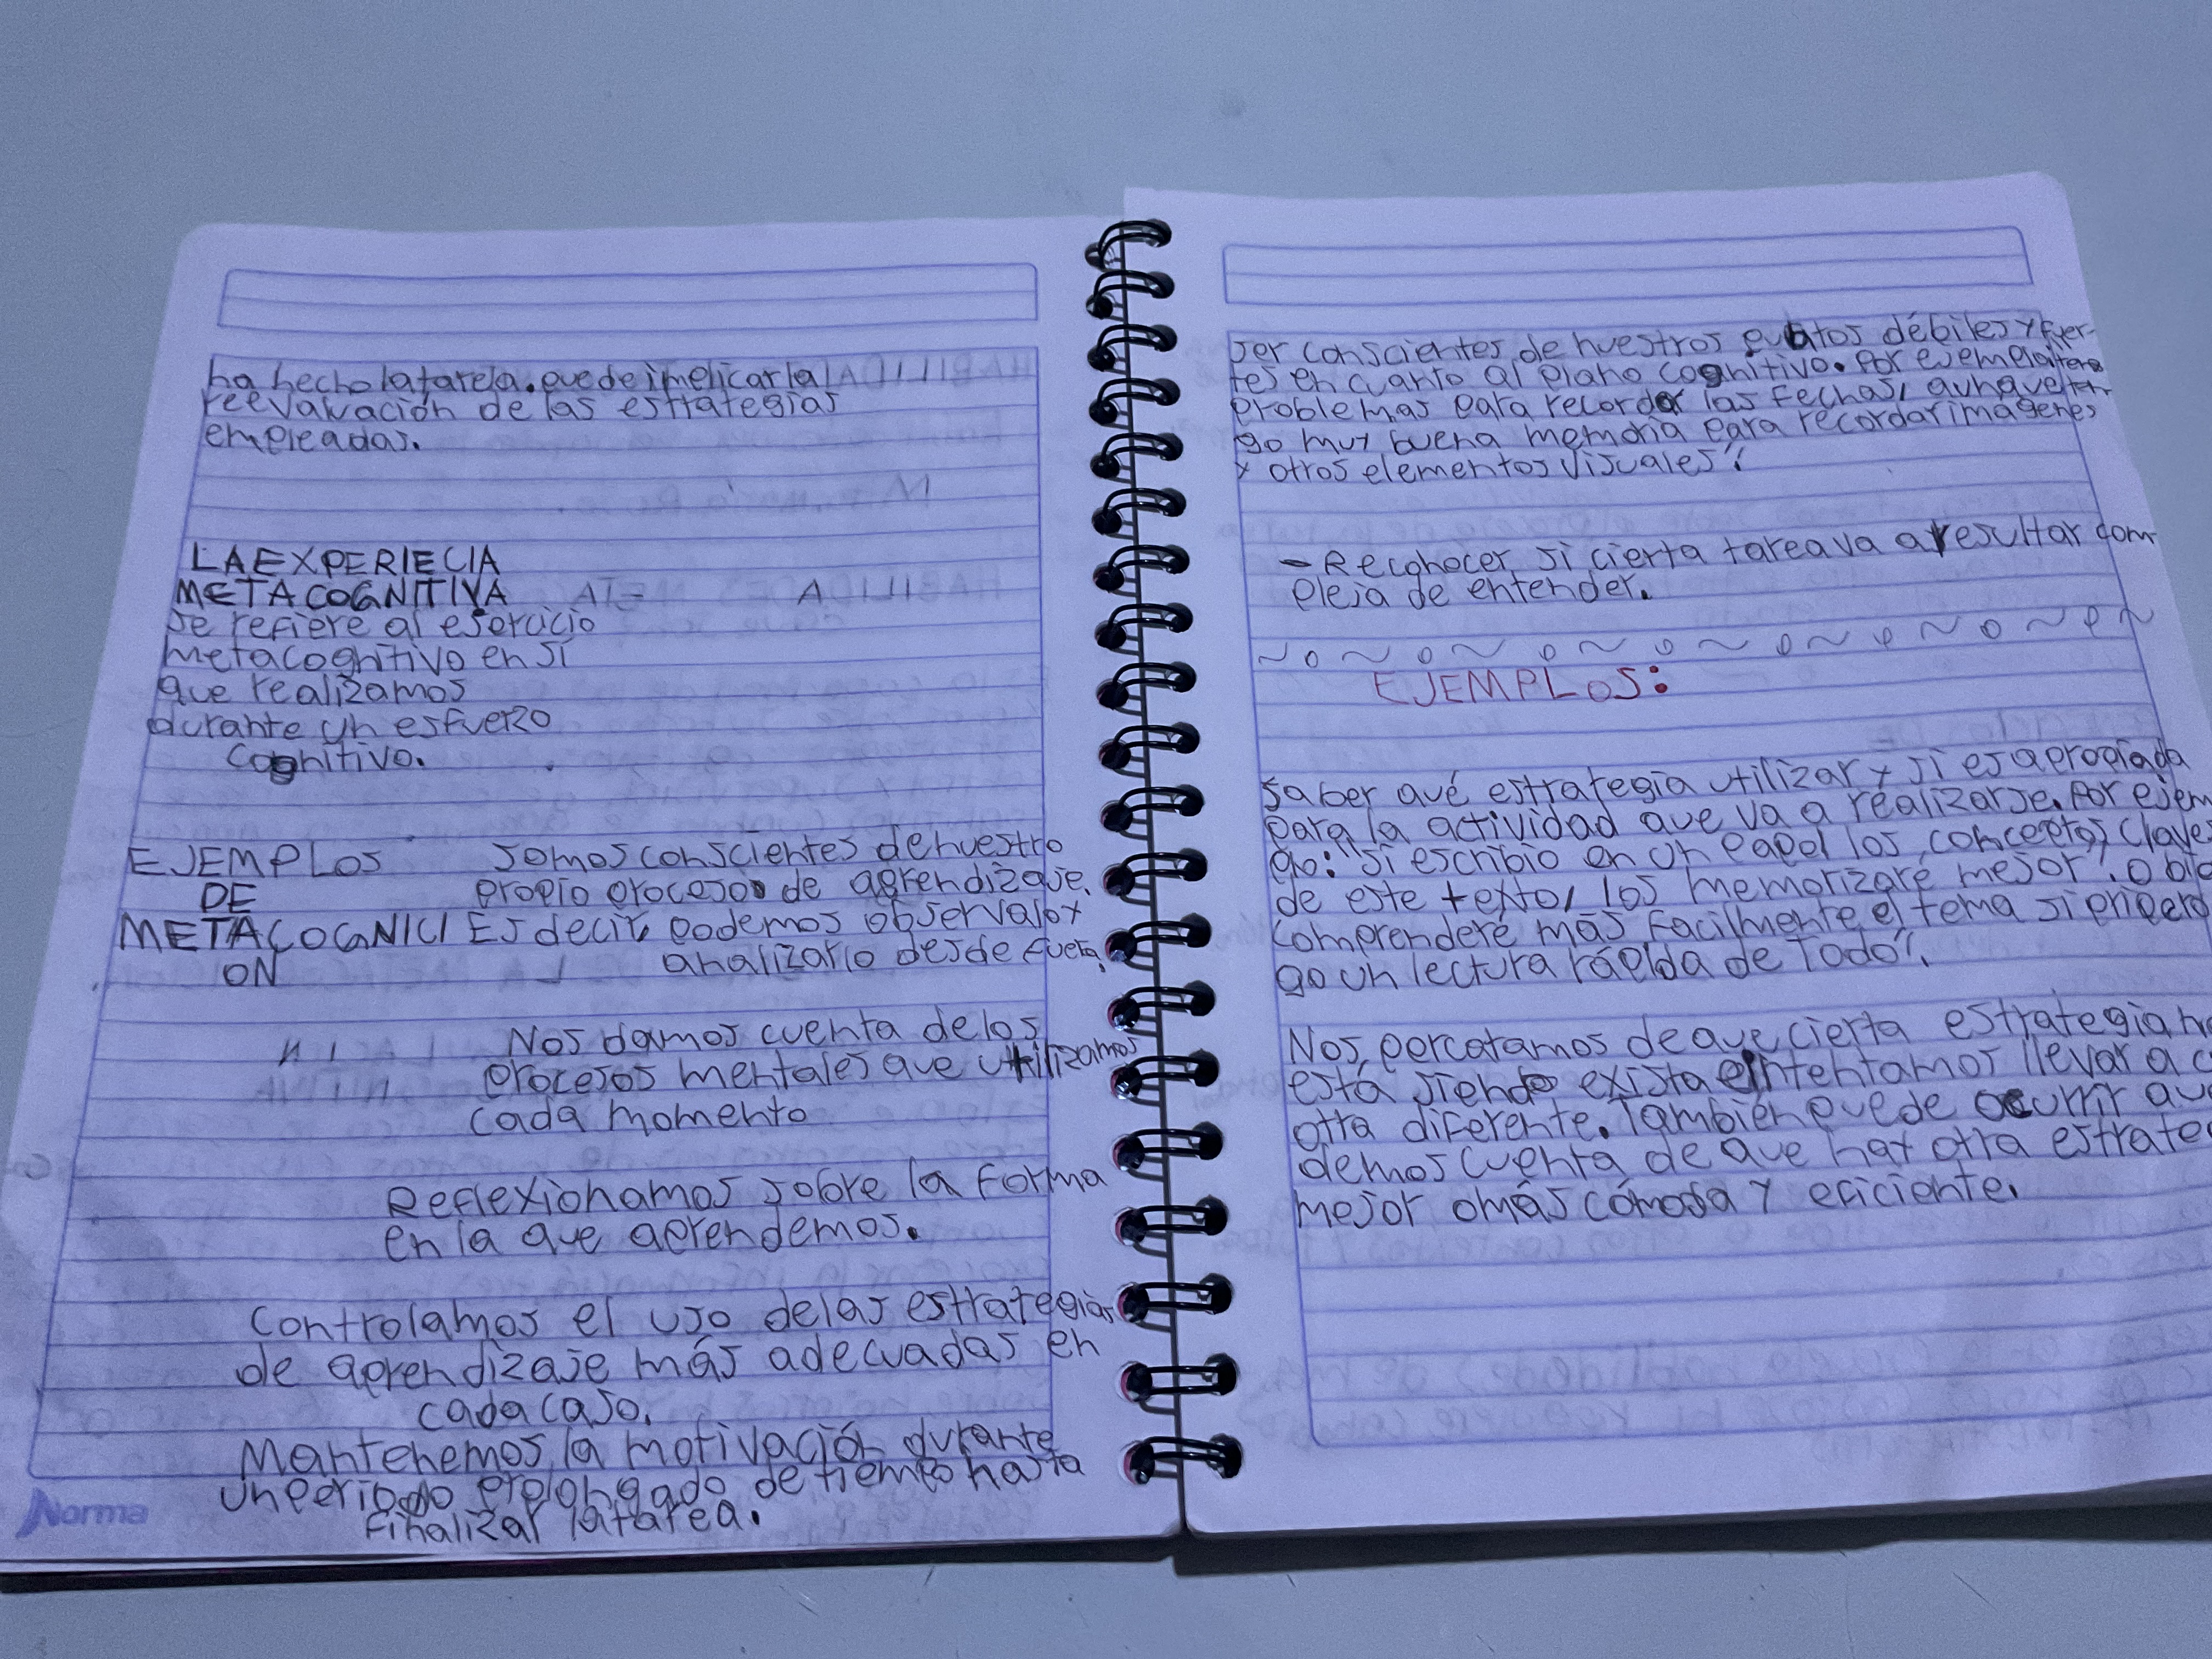 ha hecho la tarea. puede implicar la
reevaluación de las estrategias
empleadas.
LA EXPERIECIA
METACOGNITIVA
se refiere al ejercicio
metacognitivo en sí
que realizamos
durante un esfuerzo
cognitivo.
EJEMPLOS
DE
METACOGNICI
ON
somos conscientes de nuestro
propio proceso de aprendizaje.
Es decir, podemos observalo y
analizarlo desde fuera.
Nos damos cuenta de los
procesos mentales que utilizamos
cada momento
Reflexionamos sobre la forma
en la que aprendemos.
Controlamos el uso de las estrategias
de aprendizaje más adecuadas en
cada caso.
Mantenemos la motivación durante
un periodo prolongado de tiempo hasta
finalizar la tarea.
Norma
ser conscientes de nuestros puntos débiles y fuer-
tes en cuanto al plano cognitivo. Por ejemplo
problemas para recordar las fechas, aunque ten-
go muy buena memoria para recordar imágenes
y otros elementos visuales".
- Reconocer si cierta tarea va a resultar com-
pleja de entender.
EJEMPLOS:
saber qué estrategia utilizar y si es apropiada
para la actividad que va a realizarse. Por ejem
go: "si escribio en un papel los conceptos claves
de este texto, los memorizaré mejor". o bie
comprenderé más facilmente el tema si
go un lectura rápida de Todo".
Nos percatamos de que cierta estrategia no
está siendo exista e intentamos llevar a c
otra diferente. También puede ocurrir que
demos cuenta de que hay otra estrate
mejor o más cómoda y eficiente.